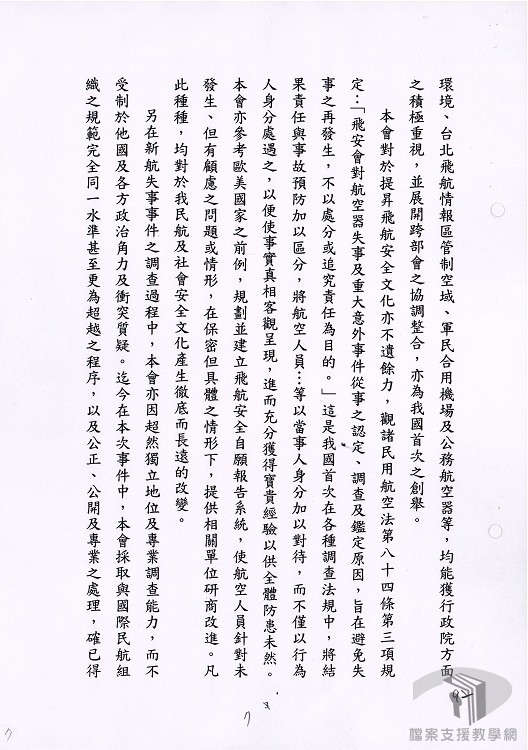 環境、台北飛航情報區管制空域、軍民合用機場及公務航空器等，均能獲行政院方面
之積極重視，並展開跨部會之協調整合，亦為我國首次之創舉。
本會對於提昇飛航安全文化亦不遺餘力，觀諸民用航空法第八十四條第三項規
定：「飛安會對航空器失事及重大意外事件從事之認定、調查及鑑定原因，旨在避免失
事之再發生，不以處分或追究責任為目的。」這是我國首次在各種調查法規中，將結
果責任與事故預防加以區分，將航空人員…等以當事人身分加以對待，而不僅以行為
人身分處遇之，以便使事實真相客觀呈現，進而充分獲得寶貴經驗以供全體防患未然。
本會亦參考歐美國家之前例，規劃並建立飛航安全自願報告系統，使航空人員針對未
發生、但有顧慮之問題或情形，在保密但具體之情形下，提供相關單位研商改進。凡
此種種，均對於我民航及社會安全文化產生徹底而長遠的改變。
另在新航失事事件之調查過程中，本會亦因超然獨立地位及專業調查能力，而不
受制於他國及各方政治角力及衝突質疑。迄今在本次事件中，本會採取與國際民航組
織之規範完全同一水準甚至更為超越之程序，以及公正、公開及專業之處理，確已得
7
7
檔案支援教學網